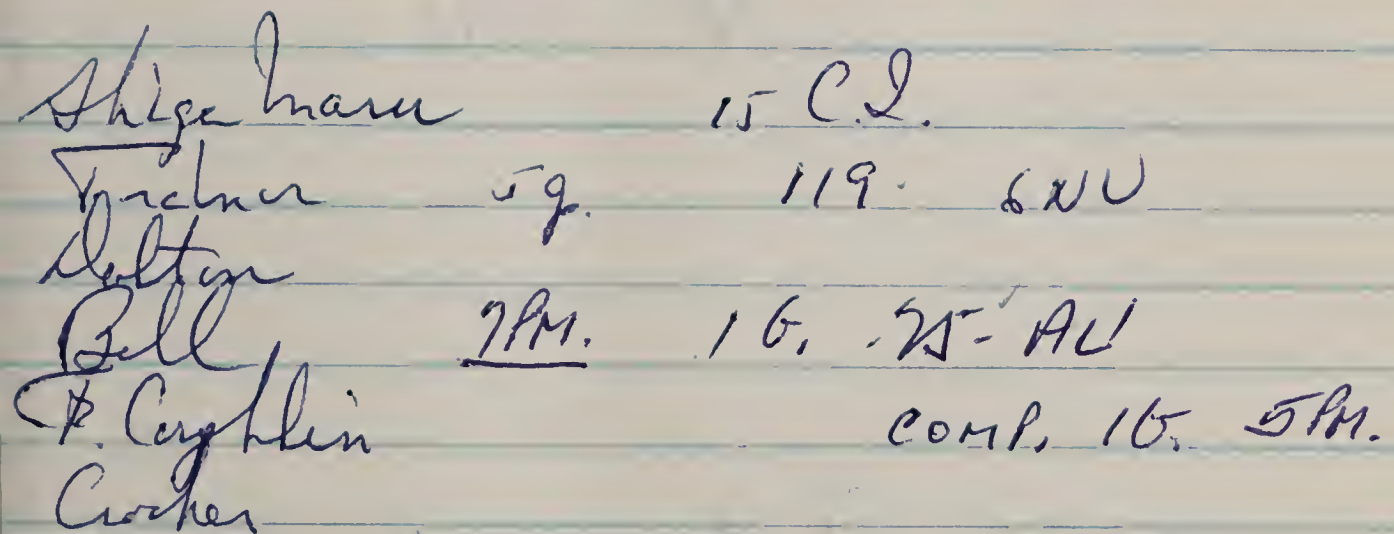 Shiga Maru 15 C.I.
5g. 119. 6NU
Dalton
Bell 7PM. 1G. 75- AU
P. Coughlin COMP. 1G. 5PM.
Crocker